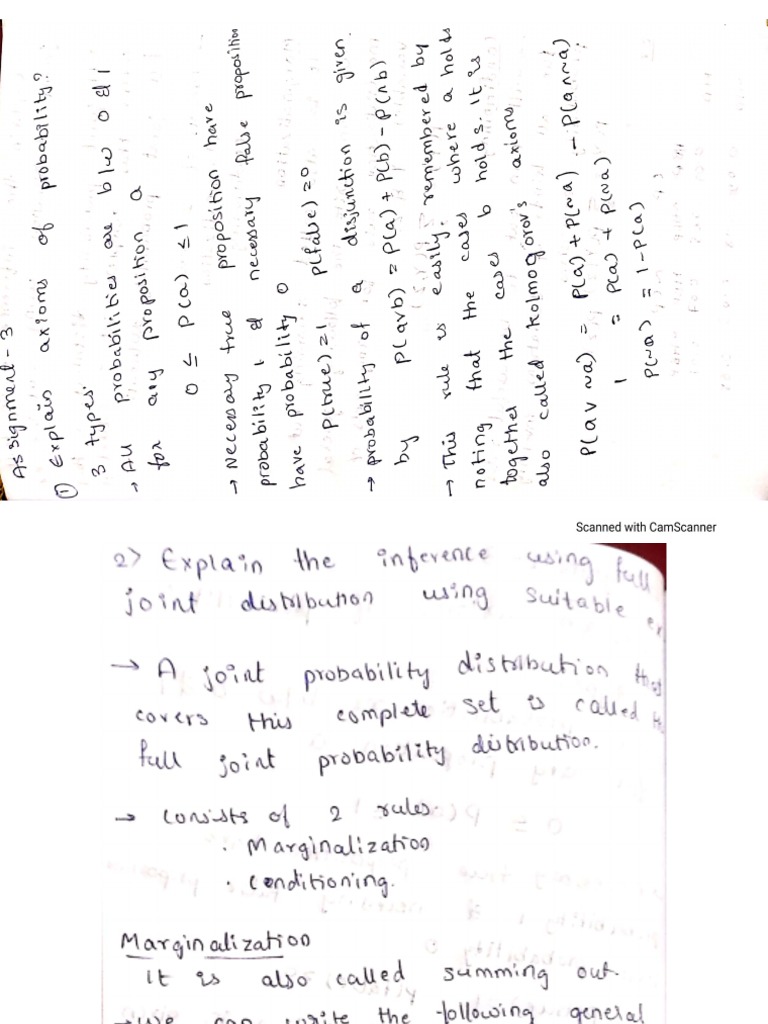 Assignment - 3
① Explain axioms of probability?
3 types.
→ All probabilities are b/w 0 & 1
for any proposition a
0 ≤ P(a) ≤ 1
→ Necessary true proposition have
probability 1 & necessary false proposition
have probability 0
P(true) = 1 P(false) = 0
→ probability of a disjunction is given
by P(avb) = P(a) + P(b) - P(∧b)
→ This rule is easily remembered by
noting that the cases where a holds
together the cases b holds. It is
also called kolmogorov's axioms
P(a v ~a) = P(a) + P(~a) - P(a∧~a)
1 = P(a) + P(~a)
P(~a) = 1 - P(a)
Scanned with CamScanner
2) Explain the inference using full
joint distribution using suitable
→ A joint probability distribution that
covers this complete set is called
full joint probability distribution.
→ consists of 2 rules
. Marginalization
. Conditioning.
Marginalization
It is also called summing out.
→ We can write the following general